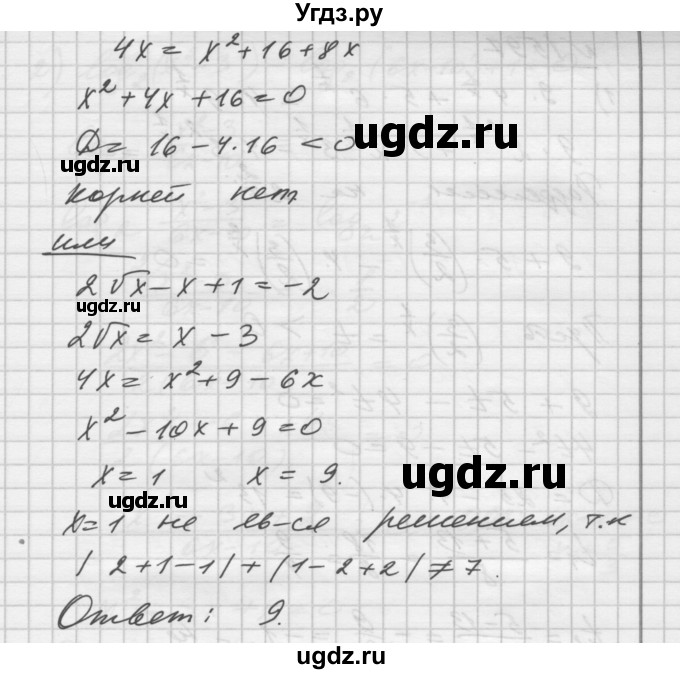 Угдз.ру
4x = x² + 16 + 8x
x² + 4x + 16 = 0
D = 16 - 4·16 < 0
ugdz.ru
ugdz.ru
корней нет
или
2√x - x + 1 = -2
ugdz.ru
2√x = x - 3
4x = x² + 9 - 6x
x² - 10x + 9 = 0
ugdz.ru
x = 1 x = 9.
ugdz.ru
x = 1 не яв-ся решением, т.к
|2+1-1| + |1-2+2| ≠ 7.
Ответ: 9.
ugdz.ru